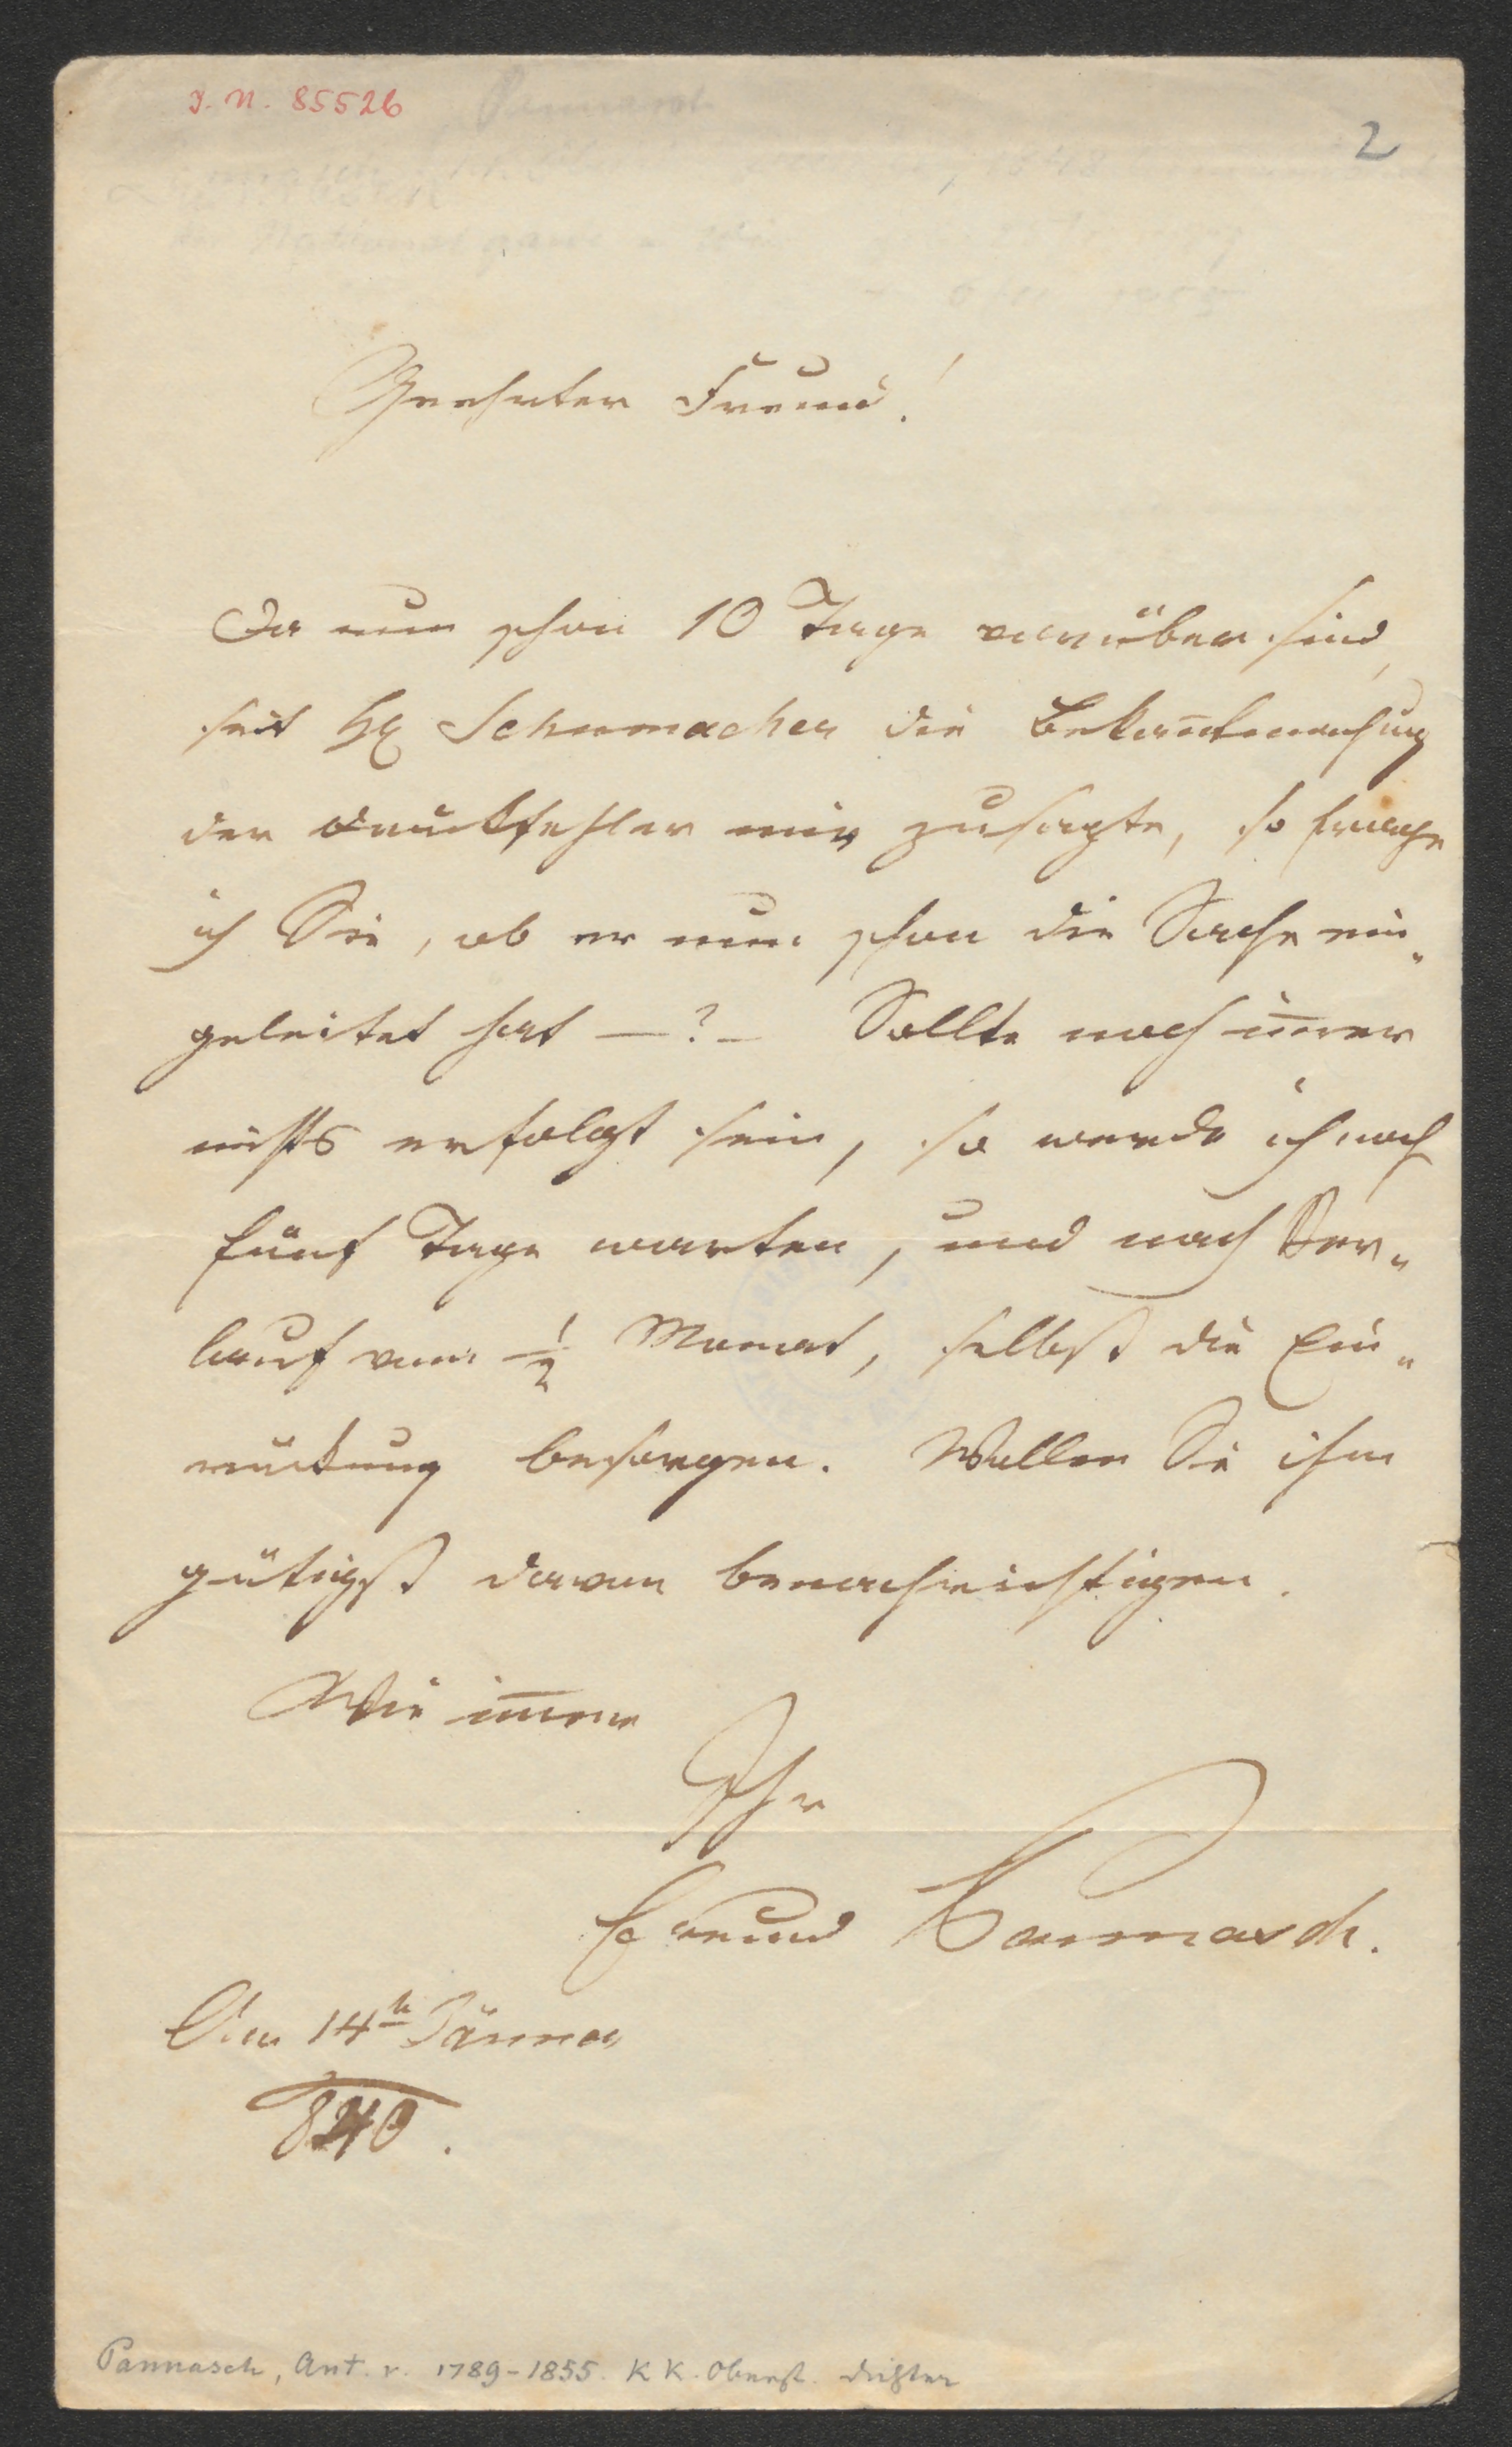 J. N. 85526
2
Geehrter Freund!
Da nun schon 10 Tage vorüber sind,
seit H͞r Schumacher die Bekan̅tmachung
der Druckfehler mir zusagte, so frage
ich Sie, ob er nun schon die Sache ein„
geleitet hat —?— Sollte noch im̅er
nichts erfolgt sein, so werde ich noch
fünf Tage warten, und nach Ver„
lauf vom ½ Monat, selbst die Ein„
rückung besorgen. Wollen Sie ihn
gütigst davon benachrichtigen.
Wie im̅er
Ihr
Freund Pannasch.
Am 14t Jänner
840.
Pannasch, Ant. v. 1789-1855. K K. Oberst. Dichter